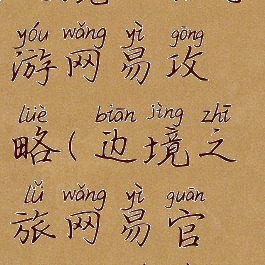 yóu wǎng yì gōng
游网易攻
lüè biān jìng zhī
略(边境之
lǚ wǎng yì guān
旅网易官